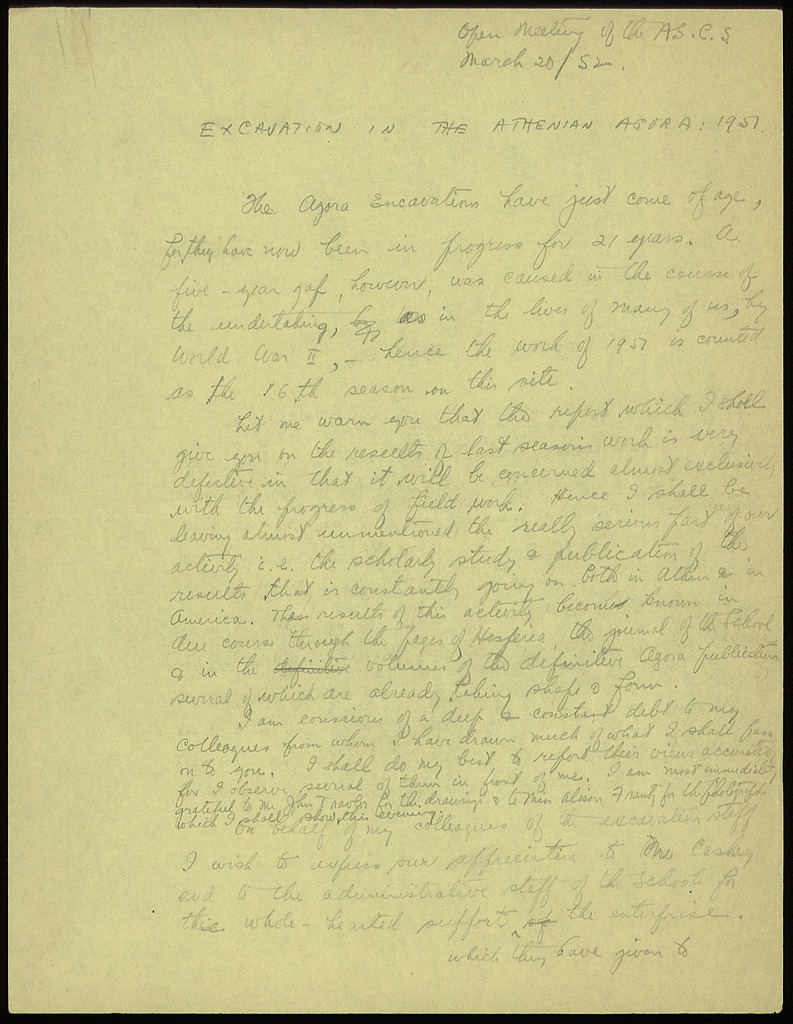 Open Meeting of the A.S.C.S.
March 20/52.
EXCAVATION IN THE ATHENIAN AGORA: 1951.
The Agora Excavations have just come of age,
for they have now been in progress for 21 years. A
five-year gap, however, was caused in the course of
the undertaking, as in the lives of many of us, by
World War II, – hence the work of 1951 is counted
as the 16th season on this site.
Let me warn you that the report which I shall
give you on the results of last season's work is very
defective in that it will be concerned almost exclusively
with the progress of field work. Hence I shall be
leaving almost unmentioned the really serious part of our
activity i.e. the scholarly study & publication of the
results that is constantly going on both in Athens & in
America. The results of this activity become known in
due course through the pages of Hesperia, the journal of the School,
& in the definitive volumes of the definitive Agora publication
several of which are already taking shape & form.
I am conscious of a deep & constant debt to my
colleagues from whom I have drawn much of what I shall pass
on to you. I shall do my best to report their views accurately
for I observe several of them in front of me. I am most immediately
grateful to Mr. John Travlos for the drawings & to Miss Alison Frantz for the photographs
which I shall show this evening.
On behalf of my colleagues of the excavation staff
I wish to express our appreciation to Mr. Caskey
and to the administrative staff of the School for
the whole-hearted support of the enterprise.
which they have given to